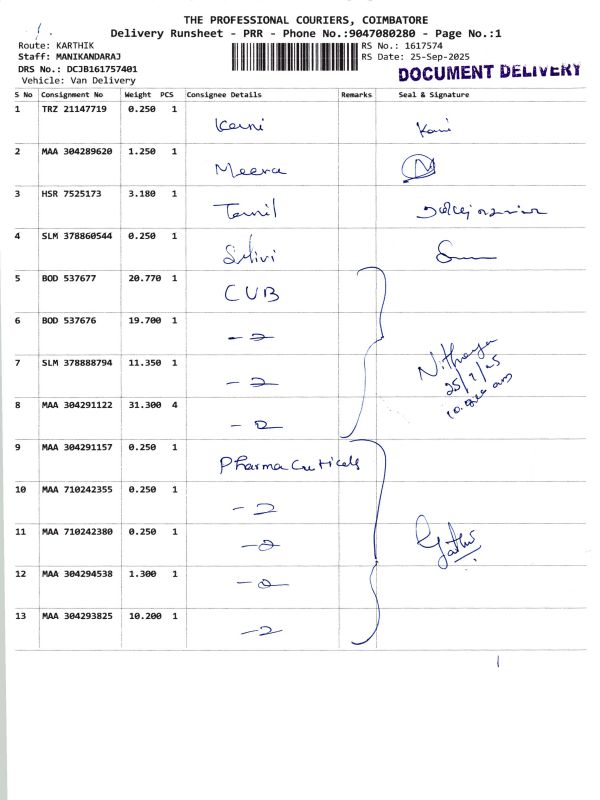 THE PROFESSIONAL COURIERS, COIMBATORE
Delivery Runsheet - PRR - Phone No.:9047080280 - Page No.:1
Route: KARTHIK
RS No.: 1617574
Staff: MANIKANDARAJ
RS Date: 25-Sep-2025
DRS No.: DCJB161757401
DOCUMENT DELIVERY
Vehicle: Van Delivery
S No Consignment No Weight PCS Consignee Details Remarks Seal & Signature
1 TRZ 21147719 0.250 1
2 MAA 304289620 1.250 1 Meera M
3 HSR 7525173 3.180 1 Tamil
4 SLM 378860544 0.250 1 Selivi
5 BOD 537677 20.770 1 CUB
6 BOD 537676 19.700 1
7 SLM 378888794 11.350 1 N.Thaya
25/9/25
8 MAA 304291122 31.300 4
9 MAA 304291157 0.250 1 Pharma Cuticals
10 MAA 710242355 0.250 1
11 MAA 710242380 0.250 1
12 MAA 304294538 1.300 1
13 MAA 304293825 10.200 1